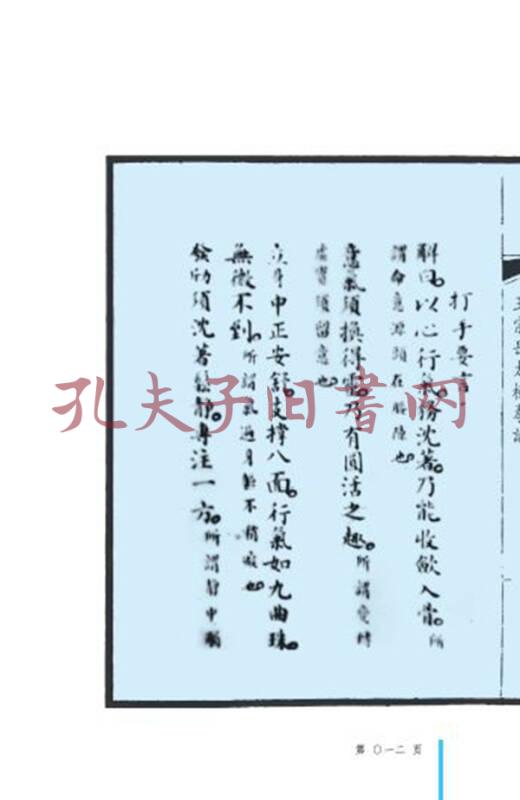 打手要言
解曰。以心行氣。務沈著。乃能收斂入骨。所
謂命意源頭在腰隙也。
意氣須換得靈。乃有圓活之趣。所謂變轉
虛實須留意也。
立身中正安舒。支撐八面。行氣如九曲珠。
無微不到。所謂氣遍身軀不稍癡也。
發勁須沈著鬆靜。專注一方。所謂靜中觸
孔夫子旧书网
第〇一二页